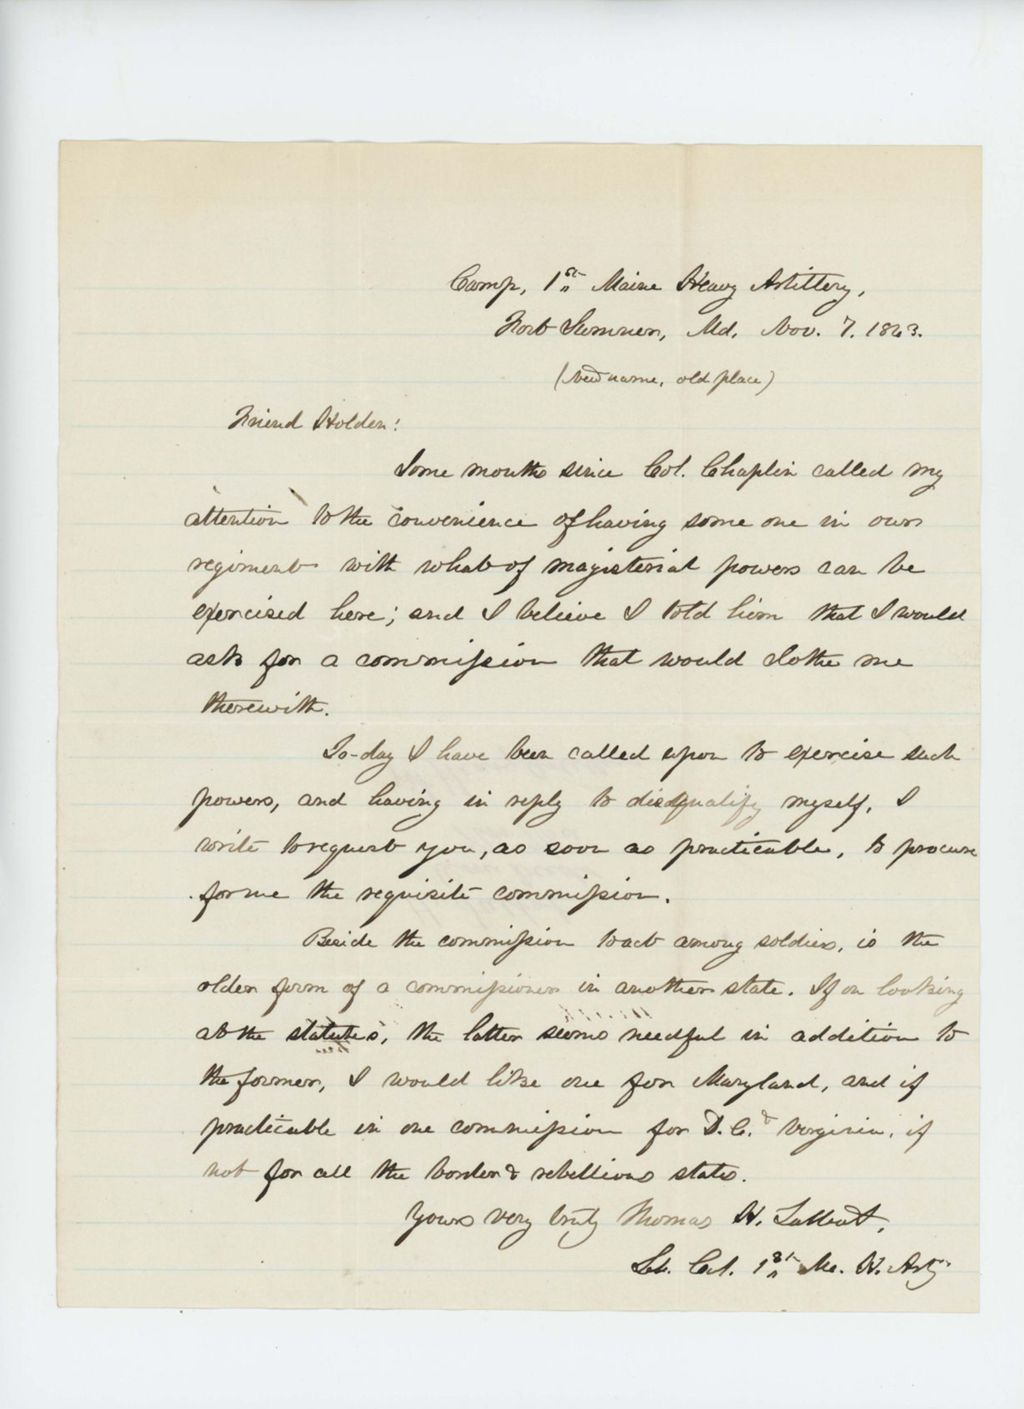 Camp, 1st Maine Heavy Artillery,
Fort Sumner, Md. Nov. 7. 1863.
(New name, old place)
Friend Holden:
Some months since Col. Chaplin called my
attention to the convenience of having some one in our
regiment with what of magisterial powers can be
exercised here; and I believe I told him that I would
ask for a commission that would clothe me
therewith.
To-day I have been called upon to exercise such
powers, and having in reply to disqualify myself, I
write to request you, as soon as practicable, to procure
for me the requisite commission.
Beside the commission to act among soldiers, is the
older form of a commissioner in another state. If on looking
at the statutes, the latter seems needful in addition to
the former, I would like one for Maryland, and if
practicable in one commission for D.C. & Virginia, if
not for all the border & rebellious states.
Yours very truly Thomas H. Talbot,
Lt. Col. 1st Me. H. Arty.